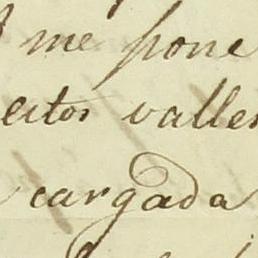 me pone
estos valles
cargada